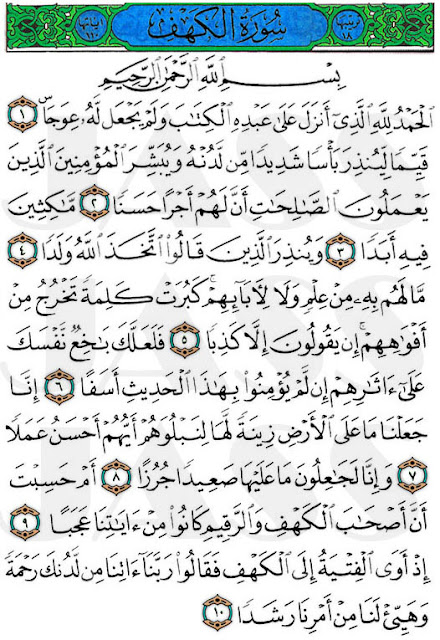 ترتيبها ١٨ سُورَةُ الكَهْفِ آياتها ١١٠
بِسْمِ اللَّهِ الرَّحْمَٰنِ الرَّحِيمِ
الْحَمْدُ لِلَّهِ الَّذِىٓ أَنزَلَ عَلَىٰ عَبْدِهِ الْكِتَٰبَ وَلَمْ يَجْعَل لَّهُۥ عِوَجَاۜ ١
قَيِّمًا لِّيُنذِرَ بَأْسًا شَدِيدًا مِّن لَّدُنْهُ وَيُبَشِّرَ الْمُؤْمِنِينَ الَّذِينَ
يَعْمَلُونَ الصَّٰلِحَٰتِ أَنَّ لَهُمْ أَجْرًا حَسَنًا ٢ مَّٰكِثِينَ
فِيهِ أَبَدًا ٣ وَيُنذِرَ الَّذِينَ قَالُوا۟ اتَّخَذَ اللَّهُ وَلَدًا ٤
مَّا لَهُم بِهِۦ مِنْ عِلْمٍ وَلَا لِءَابَآئِهِمْ ۚ كَبُرَتْ كَلِمَةً تَخْرُجُ مِنْ
أَفْوَٰهِهِمْ ۚ إِن يَقُولُونَ إِلَّا كَذِبًا ٥ فَلَعَلَّكَ بَٰخِعٌ نَّفْسَكَ
عَلَىٰٓ ءَاثَٰرِهِمْ إِن لَّمْ يُؤْمِنُوا۟ بِهَٰذَا الْحَدِيثِ أَسَفًا ٦ إِنَّا
جَعَلْنَا مَا عَلَى الْأَرْضِ زِينَةً لَّهَا لِنَبْلُوَهُمْ أَيُّهُمْ أَحْسَنُ عَمَلًا
٧ وَإِنَّا لَجَٰعِلُونَ مَا عَلَيْهَا صَعِيدًا جُرُزًا ٨ أَمْ حَسِبْتَ
أَنَّ أَصْحَٰبَ الْكَهْفِ وَالرَّقِيمِ كَانُوا۟ مِنْ ءَايَٰتِنَا عَجَبًا ٩
إِذْ أَوَى الْفِتْيَةُ إِلَى الْكَهْفِ فَقَالُوا۟ رَبَّنَآ ءَاتِنَا مِن لَّدُنكَ رَحْمَةً
وَهَيِّئْ لَنَا مِنْ أَمْرِنَا رَشَدًا ١٠